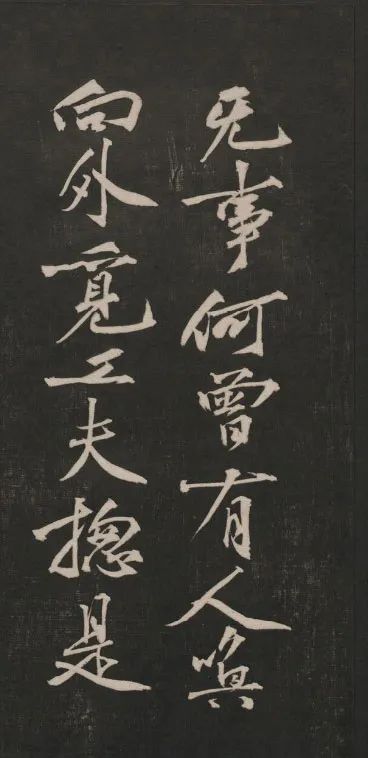 无事何曾有人喚
向外覓工夫揔是